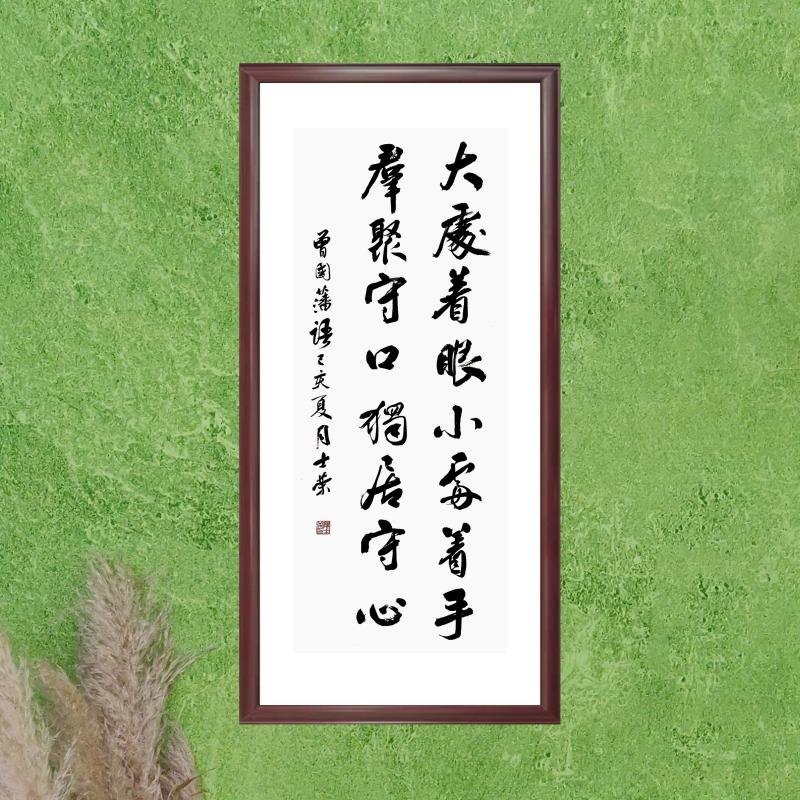 大處着眼小處着手
羣聚守口獨居守心
曾國藩語己亥夏月士荣